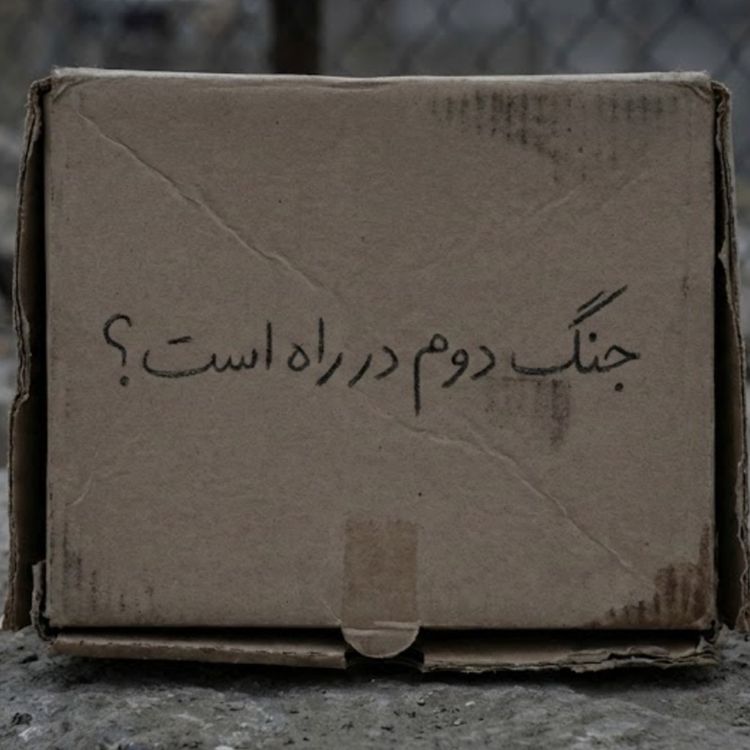 جنگ دوم در راه است؟